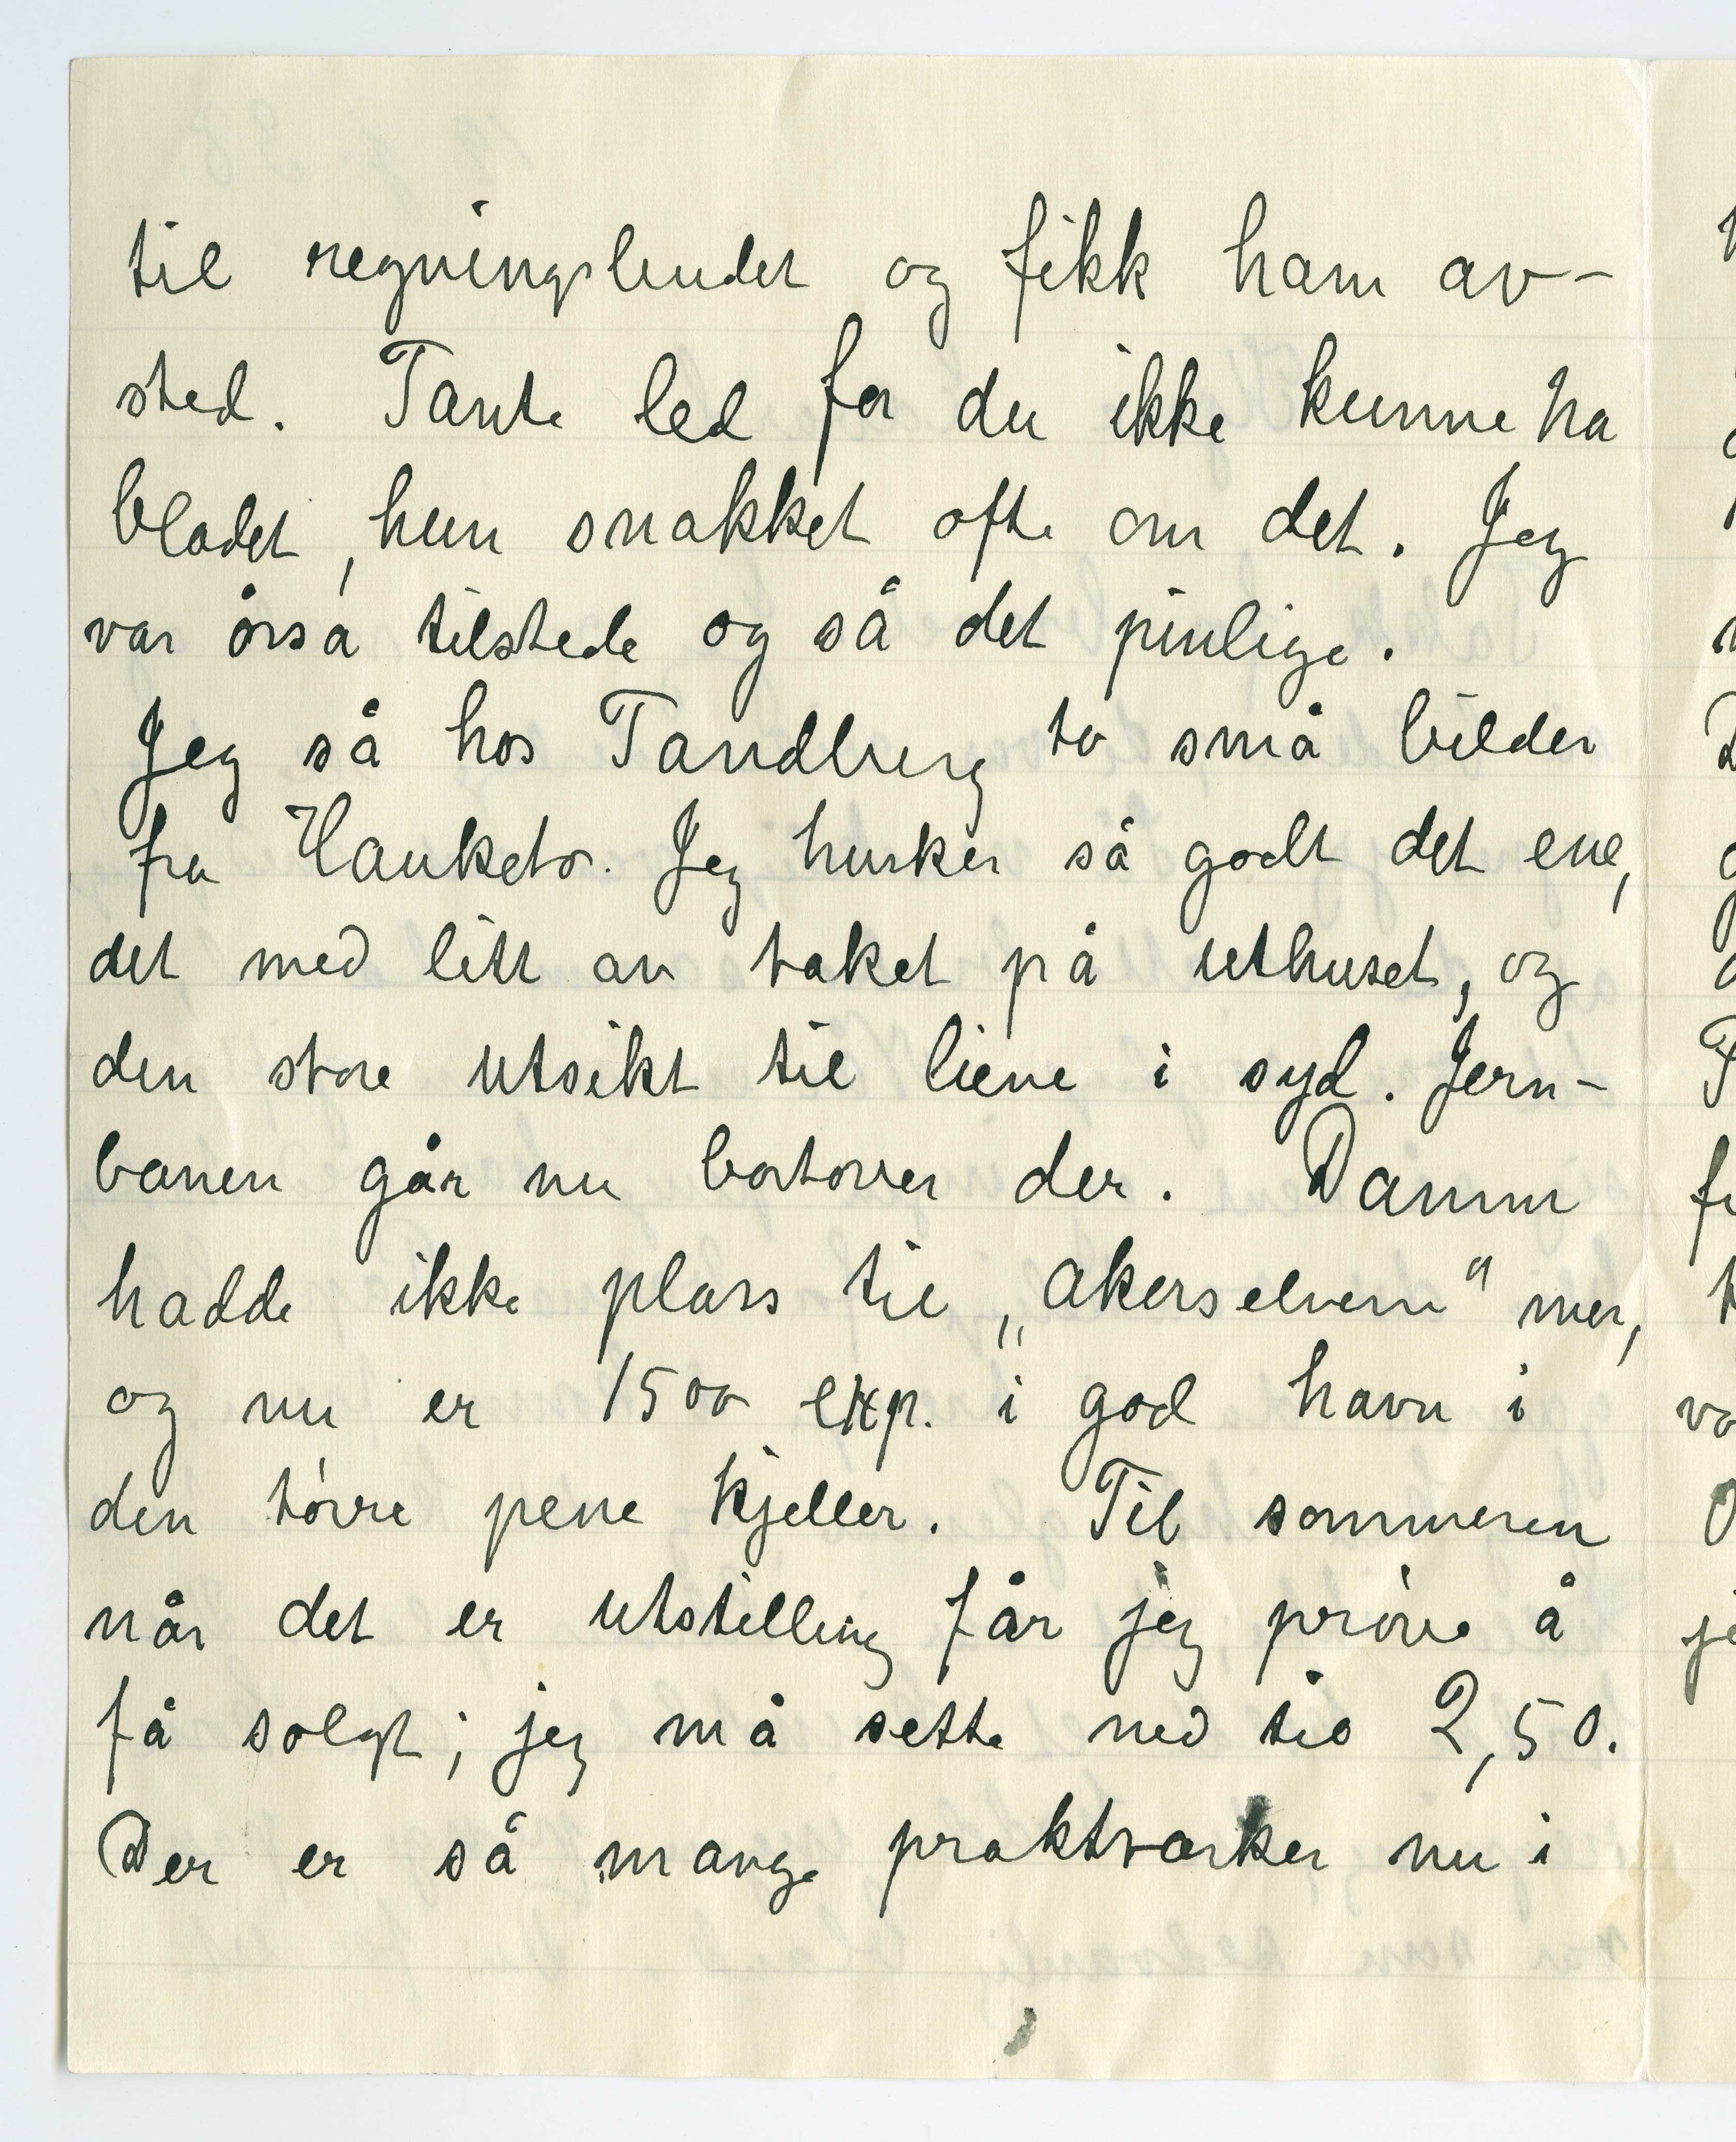 til regningsbudet og fikk ham av-
sted. Tante led for du ikke kunne ha
bladet, hun snakket ofte om det. Jeg
var også tilstede og så det pinlige.
Jeg så hos Tandberg to små bilder
fra Hauketo. Jeg husker så godt det ene,
det med litt av taket på uthuset, og
den store utsikt til liene i syd. Jern-
banen går nu bortover der. Damm
hadde ikke plass til „Akerselven“ mer,
og nu er 1500 exp. i god havn i
den tørre pene kjeller. Til sommeren
når det er utstilling får jeg prøve å
få solgt; jeg må sette ned til 2,50.
Der er så mange praktværker nu i